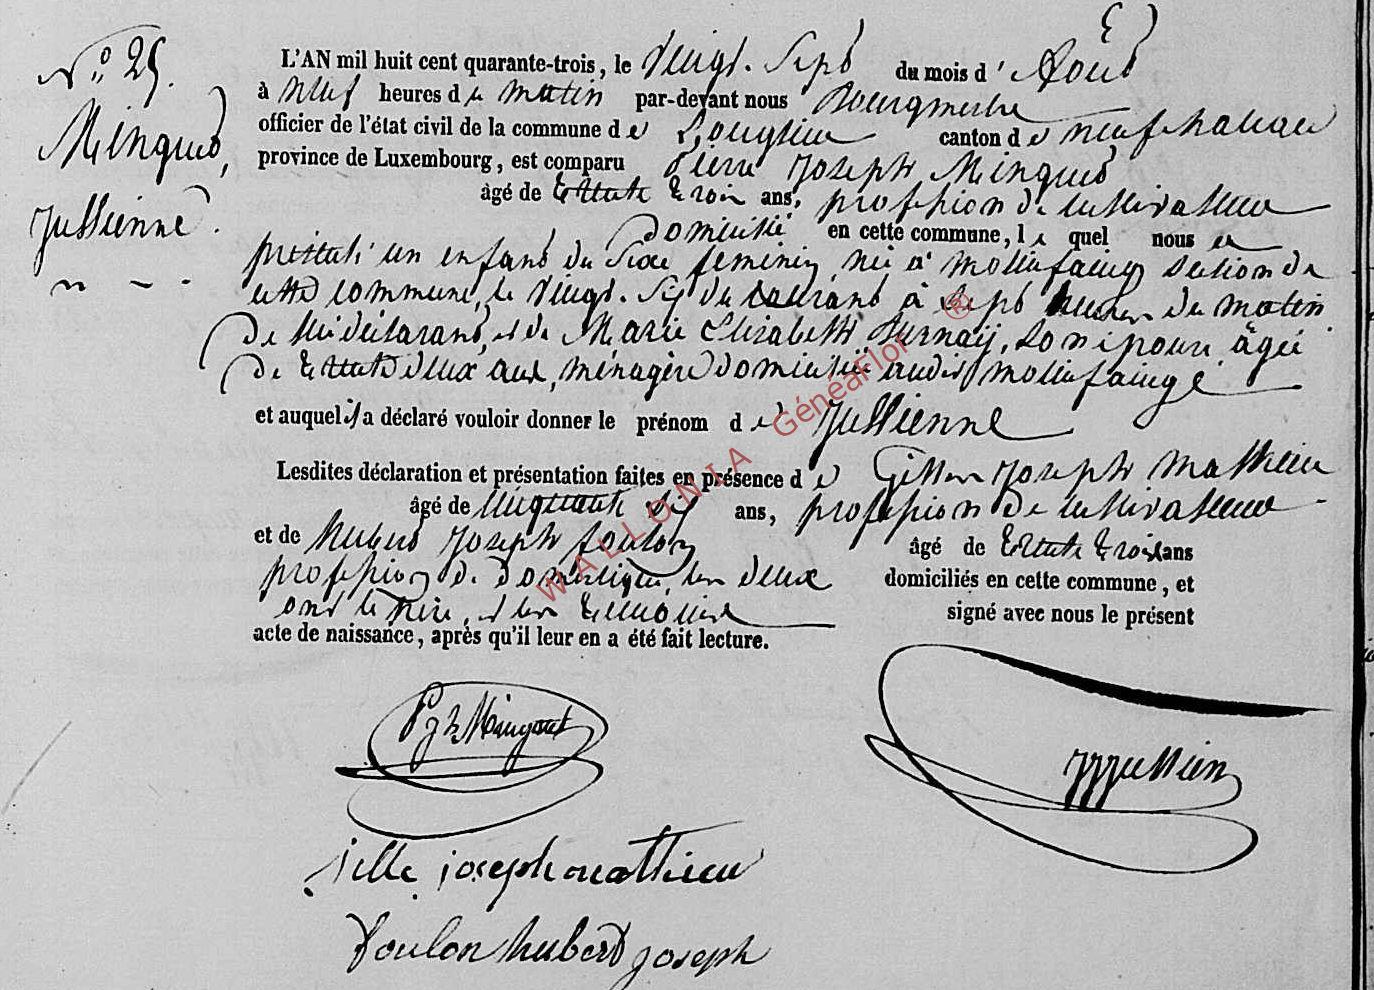 N° 25.
Mingued,
Jullienne.
L'AN mil huit cent quarante-trois, le vingt-sept du mois d'Aout
à neuf heures du matin par-devant nous Bourgmestre
officier de l'état civil de la commune de Longlier canton de neufchateau
province de Luxembourg, est comparu Pierre Joseph Mingued
âgé de trente trois ans, profession de cultivateur
domicilié en cette commune, lequel nous a
présenté un enfant du sexe feminin, né à molinfaing section de
cette commune, le vingt-six du courant à sept heures du matin
de lui déclarant, et de Marie Elizabeth Burnaÿ, son épouse, âgée
de trente deux ans, ménagère domiciliée audit molinfaing
et auquel il a déclaré vouloir donner le prénom de Jullienne
Lesdites déclaration et présentation faites en présence de Gille Joseph Mathieu
âgé de cinquante six ans, profession de cultivateur
et de Hubert Joseph foulon âgé de trente trois ans
profession de domestique, les deux domiciliés en cette commune, et
ont le père, et les témoins signé avec nous le présent
acte de naissance, après qu'il leur en a été fait lecture.
PJh Minguet
JJJullien
Jille joseph mathieu
foulon hubert joseph
WALLONIA GénéaFlor ®